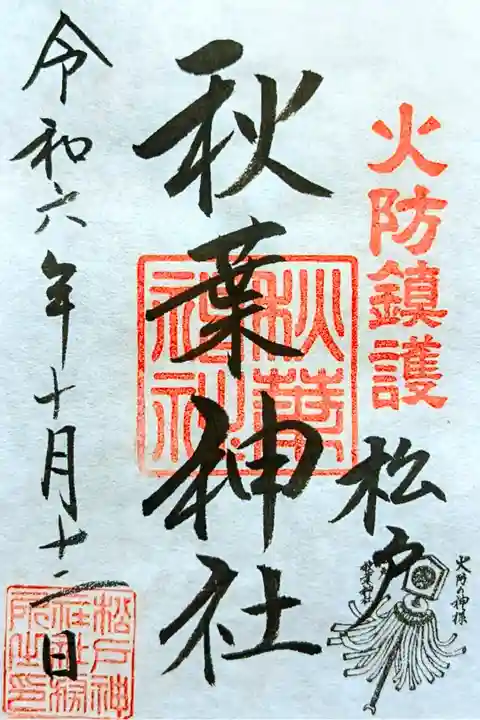 火防鎮護
松戸
火防の神様
秋葉神社
秋葉神社
令和六年十月十二日
松戸神社社務所之印